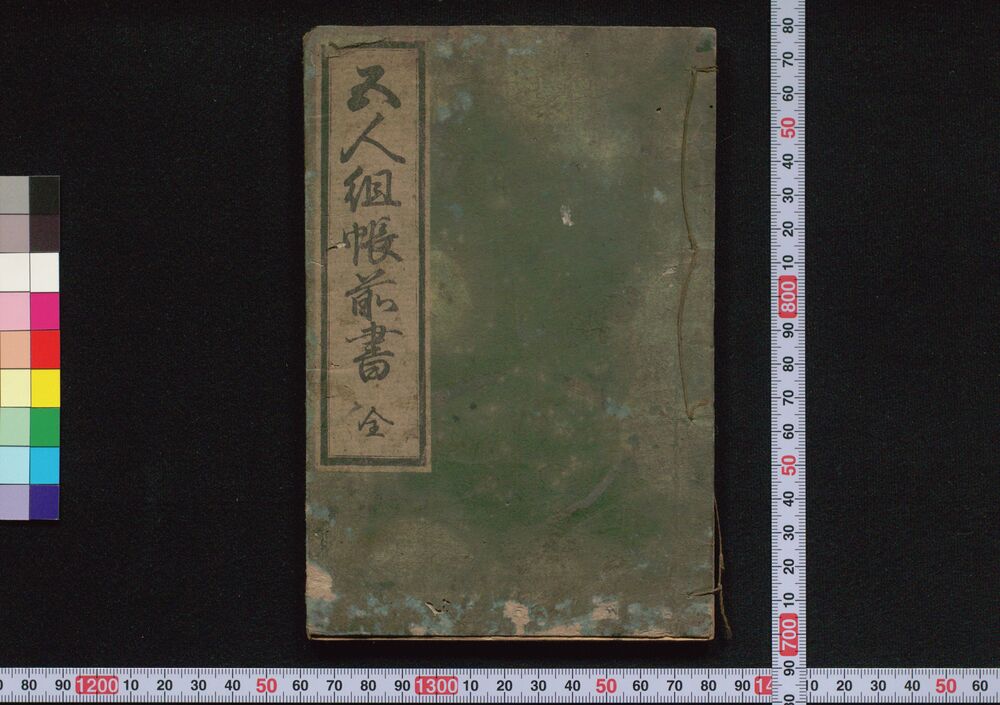 五人組帳前書 全
80 70 60 50 40 30 20 10 800 90 80 70 60 50 40 30 20 10 700 90 80
80 90 1200 10 20 30 40 50 60 70 80 90 1300 10 20 30 40 50 60 70 80 90 14 0 20 30 40 50 60